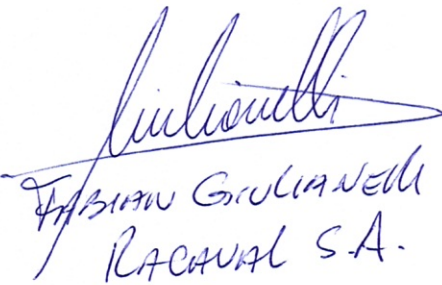 Giulianelli
FABIAN GIULIANELLI
RACAVAL S.A.